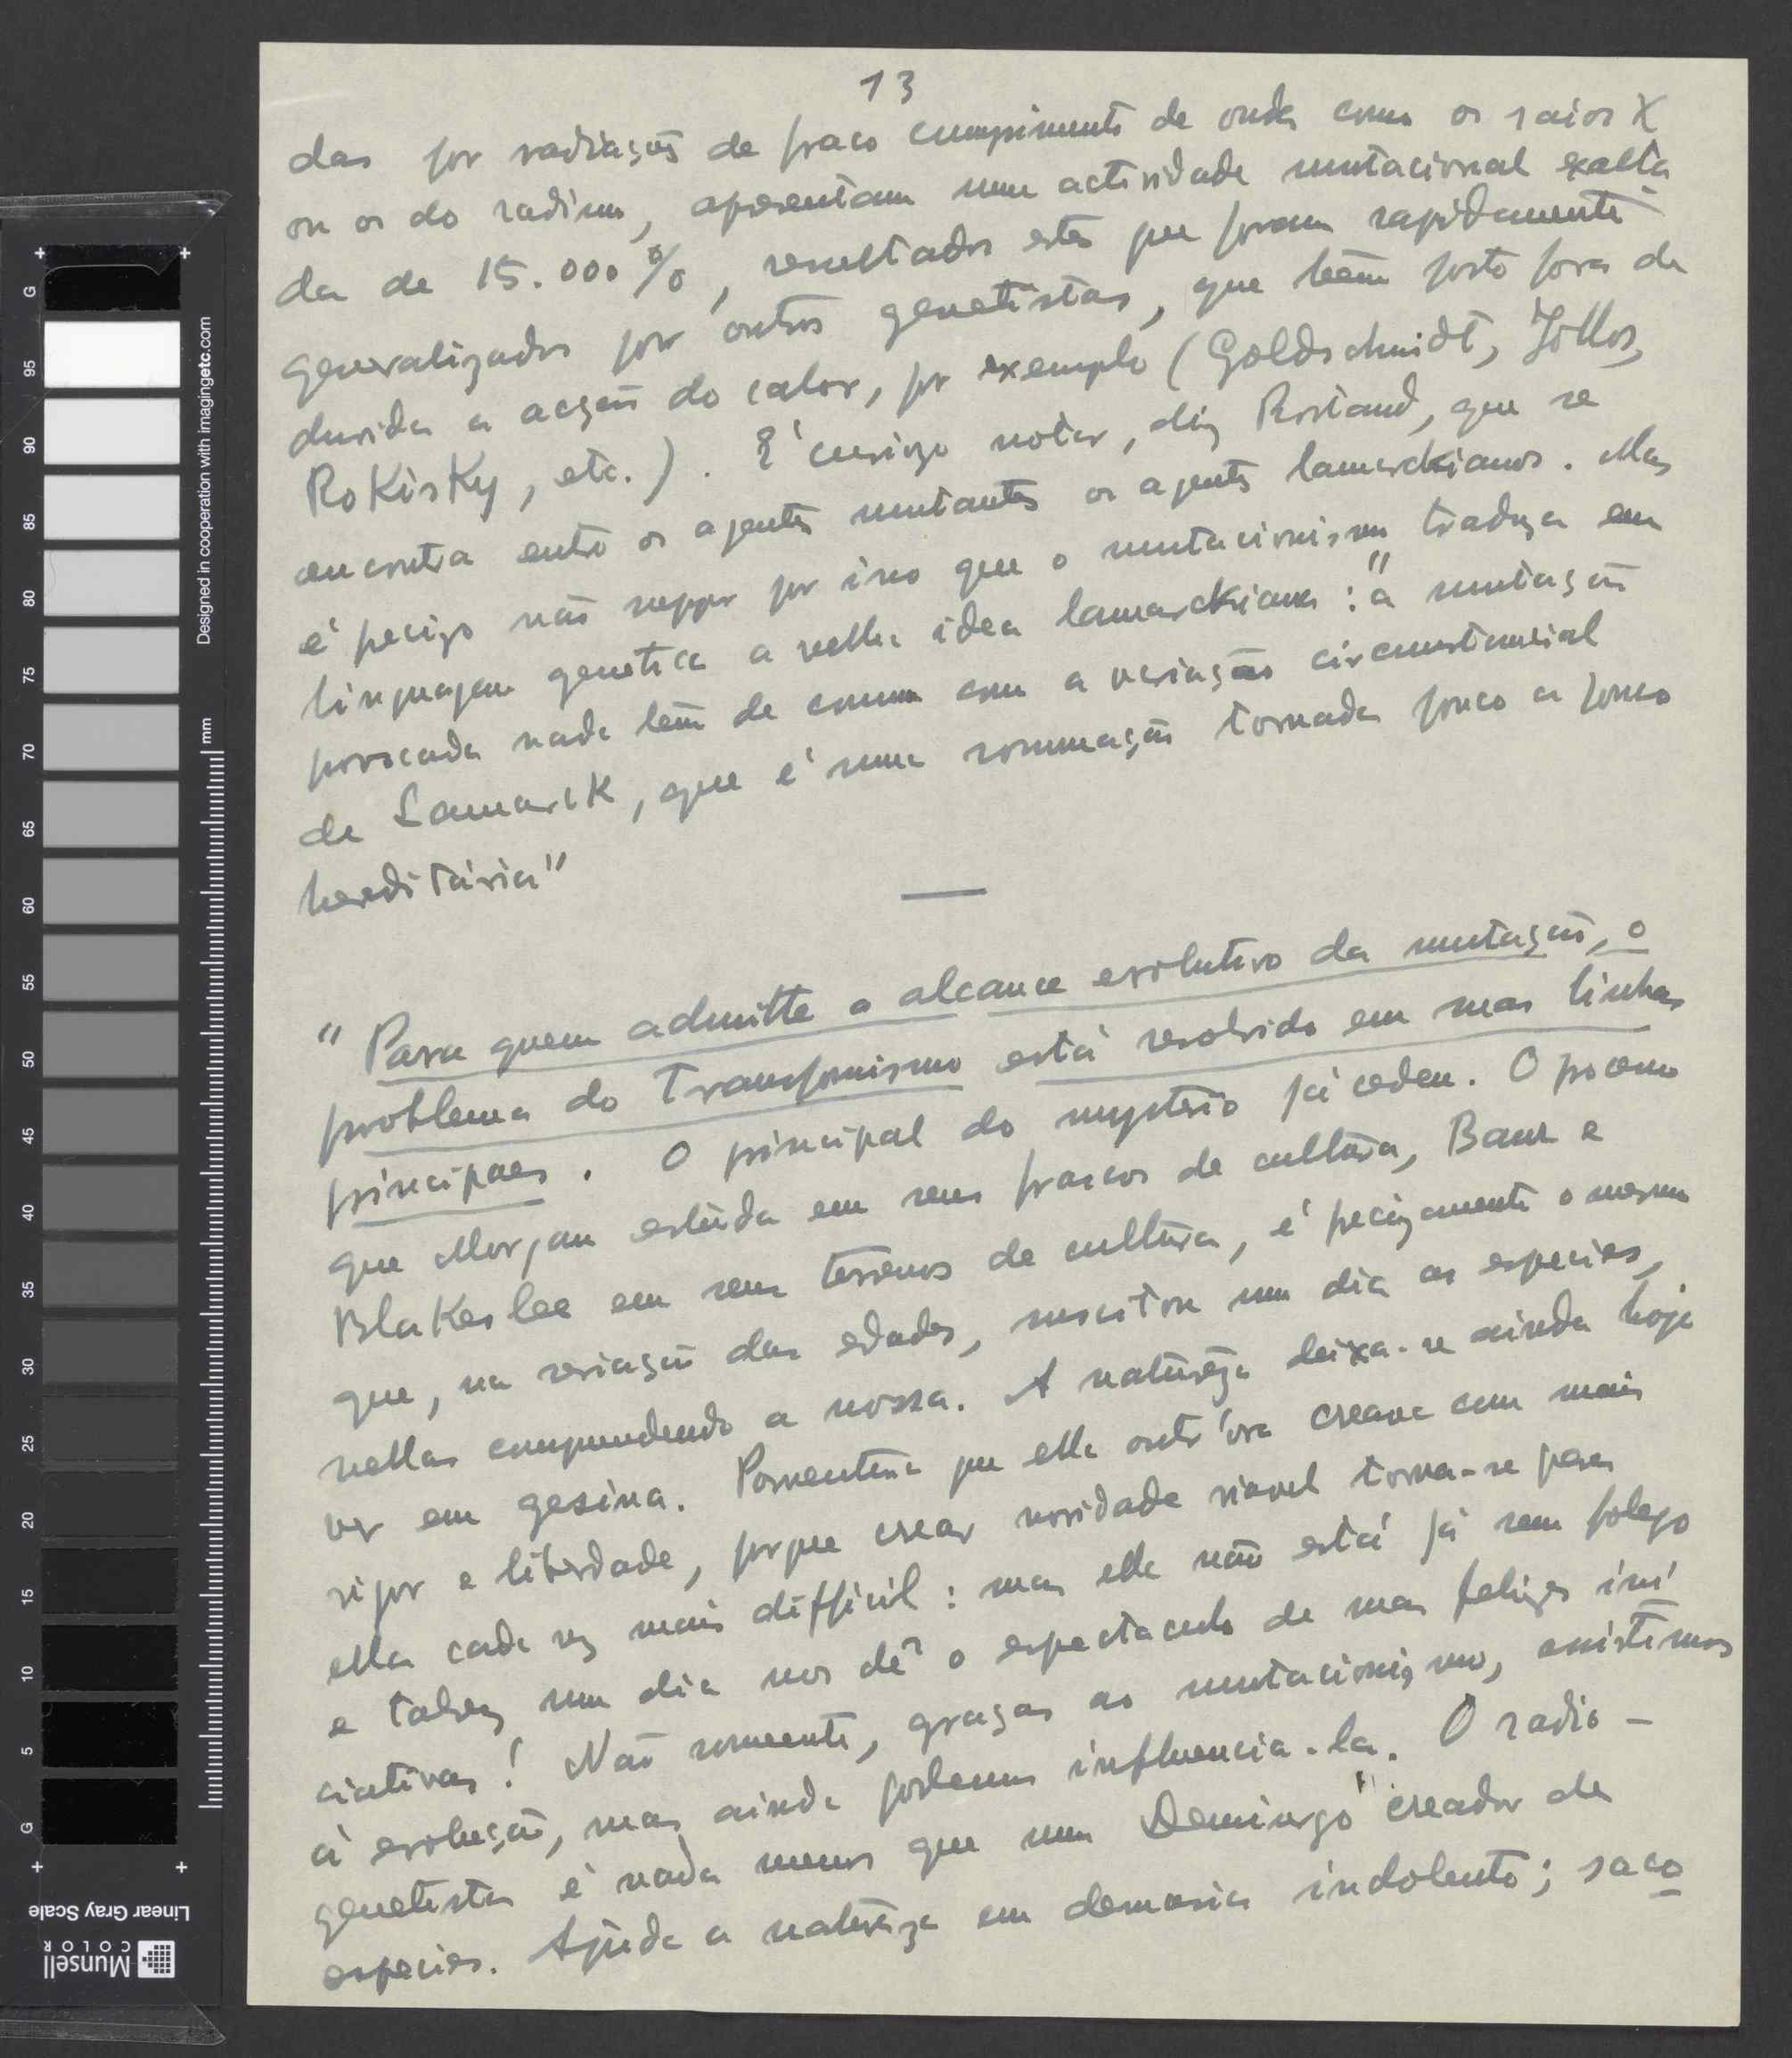 13
das por radiações de fraco cumprimento de onda como os raios X
ou os do radium, apresentam uma actividade mutacional exalta
da de 15.000 %, resultados estes que foram rapidamente
generalizados por outros genetistas, que teem posto fora de
duvida a acção do calor, por exemplo (Goldschmidt, Jollos,
Rokisky, etc.). É curiozo notar, diz Rostand, que se
encontra entre os agentes mutantes os agentes lamarckianos. Mas
é precizo não suppor por isso que o mutacionismo traduza em
linguagem genetica a velha idea lamarckiana: "a mutação
provocada nada tem de comum com a variação circumstancial
de Lamarck, que é uma sommação tornada pouco a pouco
hereditária"
"Para quem admitte o alcance evolutivo da mutação, o
problema do Transformismo está resolvido em suas linhas
principaes. O principal do mysterio já cedeu. O processo
que Morgan estuda em seus frascos de cultura, Baur e
Blakeslee em seus terrenos de cultura, é precizamente o mesmo
que, na variação das edades, suscitou um dia as especies,
nellas comprendendo a nossa. A natureza deixa-se ainda hoje
ver em gesina. Porventura que ella outr'ora creava com mais
vigor e liberdade, porque crear novidade viavel torna-se para
ella cada vez mais difficil: mas ella não está já sem folego
e talvez um dia nos dê o espectaculo de suas felizes ini
ciativas! Não somente, graças ao mutacionismo, assistimos
á evolução, mas ainda podemos influencia-la. O radio-
genetista é nada menos que um Demiurgo creador de
especies. Ajuda a natureza em demasia indolente; saco